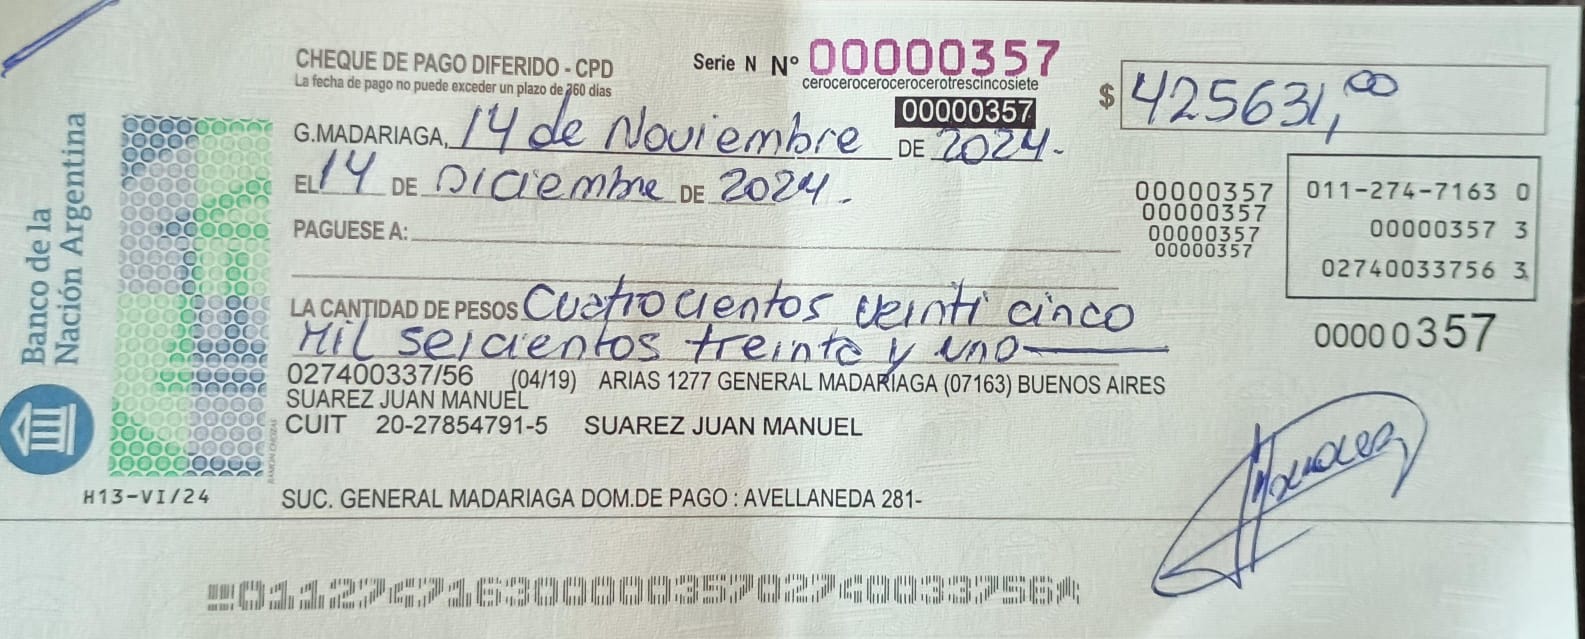 CHEQUE DE PAGO DIFERIDO - CPD
La fecha de pago no puede exceder un plazo de 360 días
Serie N Nº 00000357
cerocerocerocerocerotrescincosiete
00000357
$ 425631,00
G.MADARIAGA, 14 de Noviembre DE 2024.
EL 14 DE Diciembre DE 2024.
PAGUESE A:
00000357
00000357
00000357
00000357
011-274-7163 0
00000357 3
02740033756 3
LA CANTIDAD DE PESOS Cuatrocientos veinti cinco
Mil seicientos treinta y uno
00000357
027400337/56 (04/19) ARIAS 1277 GENERAL MADARIAGA (07163) BUENOS AIRES
SUAREZ JUAN MANUEL
CUIT 20-27854791-5 SUAREZ JUAN MANUEL
SUC. GENERAL MADARIAGA DOM.DE PAGO : AVELLANEDA 281-
Banco de la
Nación Argentina
RAMON CHOZAS
H13-VI/24
01127471630000035702740033756